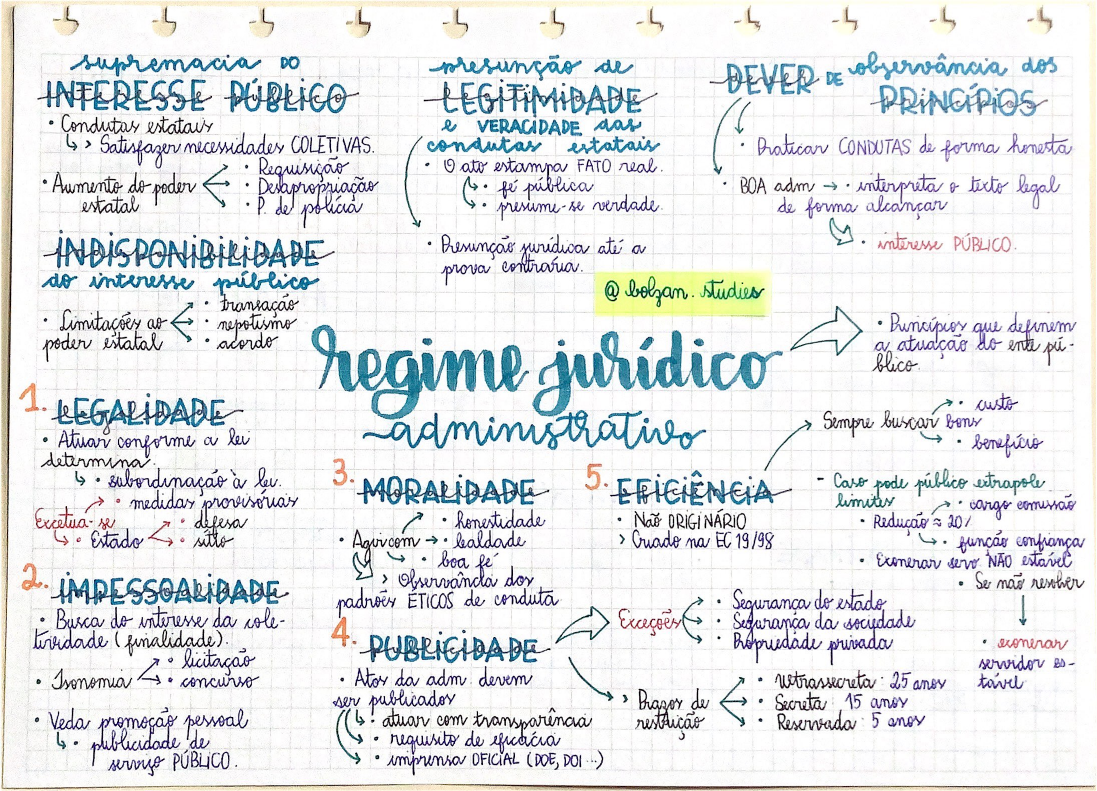 supremacia DO
INTERESSE PÚBLICO
• Condutas estatais
↳ > Satisfazer necessidades COLETIVAS.
• Aumento do poder
estatal
• Requisição
• Desapropriação
• P. de polícia
INDISPONIBILIDADE
do interesse público
• Limitações ao
poder estatal
• transação
• nepotismo
• acordo
presunção de
LEGITIMIDADE
e VERACIDADE das
condutas estatais
• O ato estampa FATO real.
↳ • fé pública
↳ • presume-se verdade.
• Presunção jurídica até a
prova contrária.
@bolzan.studies
DEVER DE observância dos
PRINCÍPIOS
• Praticar CONDUTAS de forma honesta
• BOA adm → • interpreta o texto legal
de forma alcançar
• interesse PÚBLICO.
regime jurídico
administrativo
• Princípios que definem
a atuação do ente pú-
blico.
1. LEGALIDADE
• Atuar conforme a lei
determina.
↳ • subordinação à lei.
Excetua-se
• medidas provisórias
↳ • Estado
• defesa
• sítio
2. IMPESSOALIDADE
• Busca do interesse da cole-
tividade (finalidade).
• Isonomia
• licitação
• concurso
• Veda promoção pessoal
↳ • publicidade de
serviço PÚBLICO.
3. MORALIDADE
• Agir com
• honestidade
→ • lealdade
• boa fé
> Observância dos
padrões ÉTICOS de conduta
4. PUBLICIDADE
• Atos da adm. devem
ser publicados
↳ • atuar com transparência
↳ • requisito de eficácia
↳ • imprensa OFICIAL (DOE, DOI...)
Exceções
• Segurança do estado
• Segurança da sociedade
• Propriedade privada
• Prazos de
restrição
• Ultrassecreta: 25 anos
• Secreta: 15 anos
• Reservada: 5 anos
5. EFICIÊNCIA
• Não ORIGINÁRIO
> Criado na EC 19/98
Sempre buscar bons
• custo
• benefício
- Caso pode público extrapole
limites
• Redução ≈ 20/
• cargo comissão
• função confiança
• Exonerar serv NÃO estável
• Se não resolver
• exonerar
servidor es-
tável